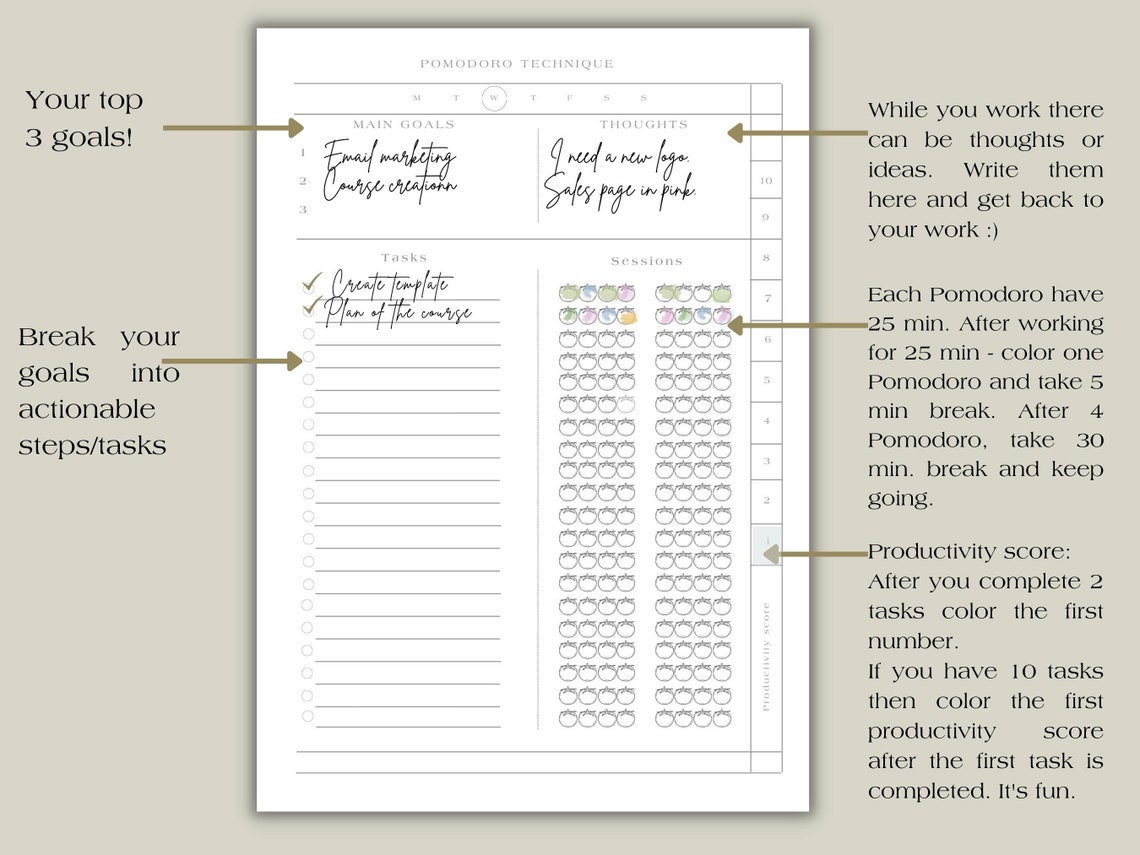 POMODORO TECHNIQUE
M T W T F S S
Your top
3 goals!
MAIN GOALS
1 Email marketing
2 Course creationn
3
THOUGHTS
I need a new logo.
Sales page in pink.
While you work there
can be thoughts or
ideas. Write them
here and get back to
your work :)
Tasks
Create template
Plan of the course
Break your
goals into
actionable
steps/tasks
Sessions
10
9
8
7
6
5
4
3
2
1
Productivity score
Each Pomodoro have
25 min. After working
for 25 min - color one
Pomodoro and take 5
min break. After 4
Pomodoro, take 30
min. break and keep
going.
Productivity score:
After you complete 2
tasks color the first
number.
If you have 10 tasks
then color the first
productivity score
after the first task is
completed. It's fun.